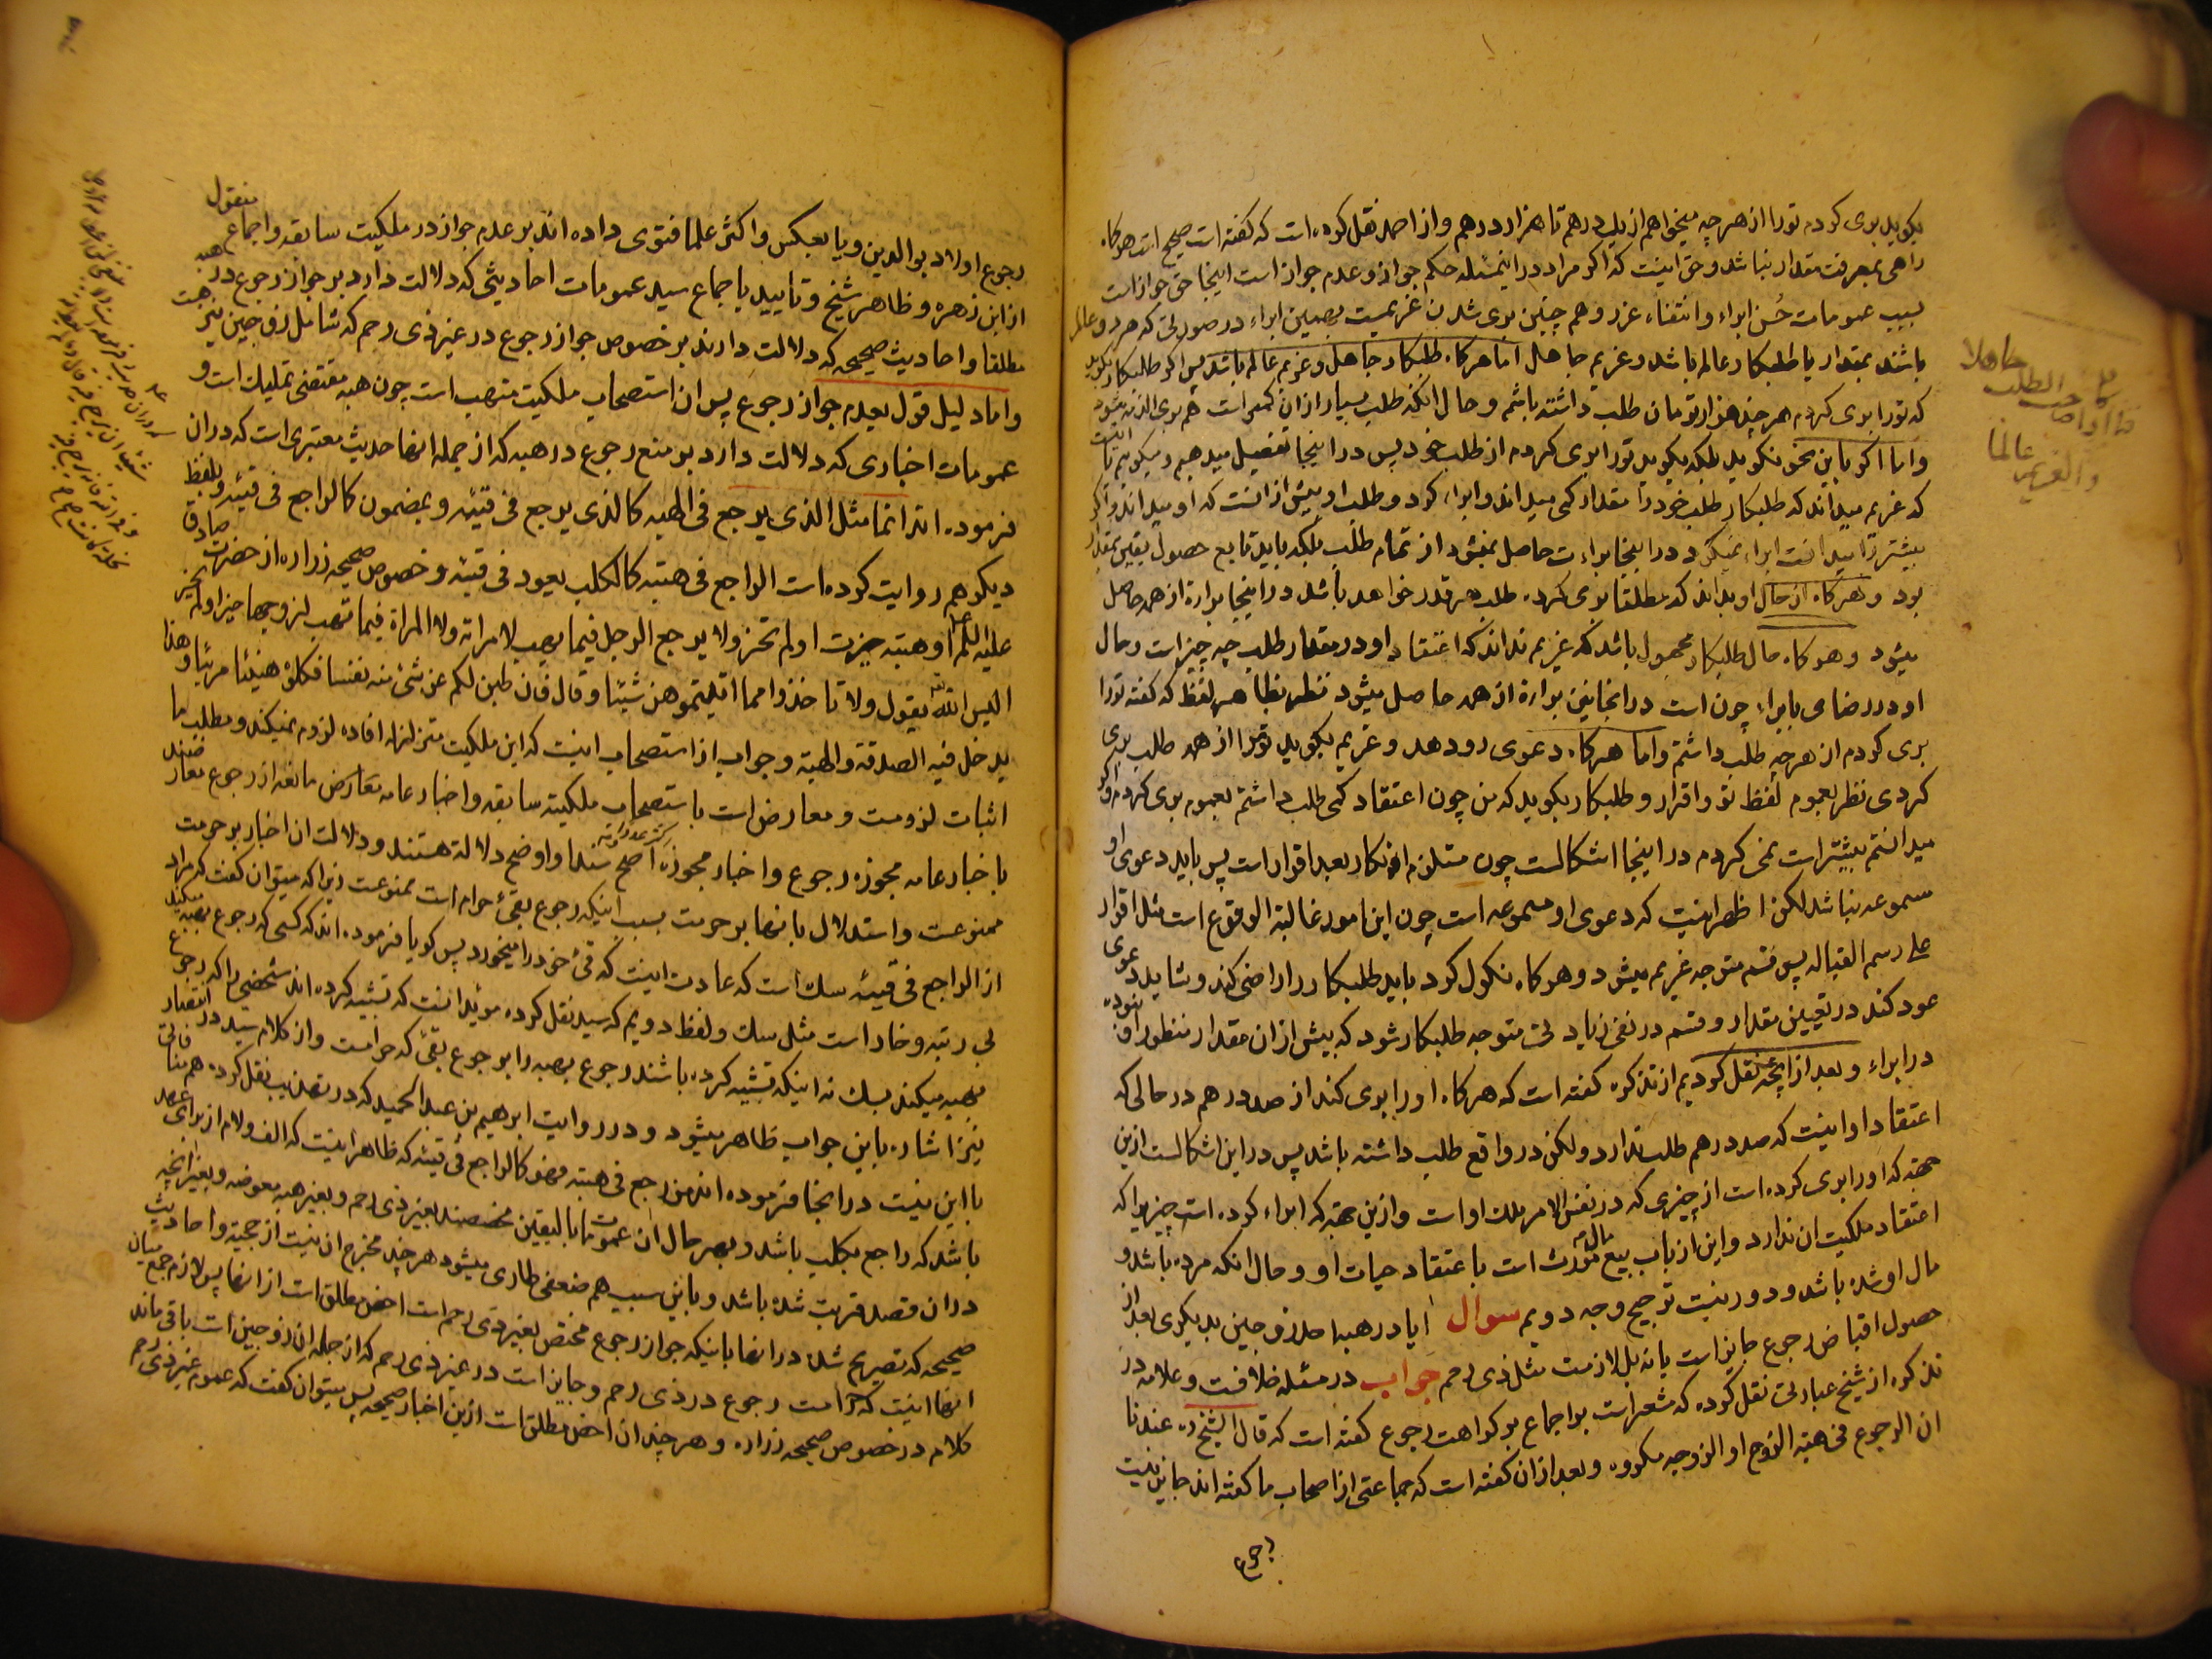 بکوید بری کردم تورا از هرچه میخواهم از یک درهم تا هزار درهم و از احمد نقل کرده است که کفته است صحیح است هرکاه
راهی بمعرفت مقدار نباشد و حق اینست که اکر مراد در اینمسئله حکم جواز و عدم جواز است اینجا حق جواز است
بسبب عمومات حُسن ابراء و انتفاء غرر و هم چنین بری شدن غریمست بهمین ابراء در صورتی که هر دو عالم
باشند بمقدار یا طلبکار عالم باشد و غریم جاهل اما هرکاه طلبکار جاهل و غریم عالم باشد پس اکر طلبکار بکوید
که تورا بری کردم هر چند هزار تومان طلب داشته باشم و حال انکه طلب بسیار از ان کمتر است هم بری الذمه میشود
و اما اکر باین نحو نکوید بلکه بکوید تورا بری کردم از طلب خود پس در اینجا تفصیل میدهیم و میکوئیم
که غریم میداند که طلبکار طلب خود را مقدار کمی میداند و ابراء کرد و طلب او بیش از انست که او میداند و اکر
بیشتر را میدانست ابراء نمیکرد در اینجا براءت حاصل نمیشود از تمام طلب بلکه باید تابع حصول یقین بمقدار
بود و هرکاه از حال او بداند که مطلقا بری کرد طلب هر قدر خواهد باشد در اینجا براءة از همه حاصل
میشود و هرکاه حال طلبکار مجهول باشد که غریم نداند که اعتقاد او در مقدار طلب چه چیز است و حال
او در رضای بابراء چون است در اینجا نیز براءة از همه حاصل میشود نظر بظاهر لفظ که کفته تورا
بری کردم از هرچه طلب داشتم و اما هرکاه دعوی رو دهد و غریم بکوید تو مرا از همه طلب بری
کردی نظر بعموم لفظ تو و اقرار و طلبکار بکوید که من چون اعتقاد کمی طلب داشتم بعموم بری کردم و اکر
میدانستم بیشتر است نمی کردم در اینجا اشکالست چون مستلزم انکار بعد اقرار است پس باید دعوی او
مسموعه نباشد لکن اظهر اینست که دعوی او مسموعه است چون این امور غالبة الوقوع است مثل اقرار
علی رسم القباله پس قسم متوجه غریم میشود و هرکاه نکول کرد باید طلبکار را راضی کند و شاید دعوی
عود کند در تعیین مقدار و قسم در نفی زیادتی متوجه طلبکار شود که بیش از ان مقدار منظور او نبوده
در ابراء و بعد از انچه نقل کردیم از تذکره کفته است که هرکاه او را بری کند از صد درهم در حالی که
اعتقاد او اینست که صد درهم طلب ندارد ولکن در واقع طلب داشته باشد پس در این اشکالست ازین
جهة که او را بری کرده است از چیزی که در نفس الامر ملک او است و ازین جهة که ابراء کرده است چیزیرا که
اعتقاد ملکیت ان ندارد و این از باب بیع مال مورث است باعتقاد حیات او و حال انکه مرده باشد و
مال او شده باشد و دور نیست ترجیح وجه دویم سوال ایا در هبه احد زوجین بدیکری بعد از
حصول اقباض رجوع جایز است یا نه بل لازمست مثل ذی رحم جواب در مسئله خلافست و علامه در
تذکره از شیخ عبارتی نقل کرده که مشعر است بر اجماع بر کراهت رجوع کفته است که قال الشیخ ره عندنا
ان الرجوع فی هبة الزوج او الزوجه مکروه و بعد از ان کفته است که جماعتی از اصحاب ما کفته اند جایز نیست
رجوع
جاهلا
صاحب الطلب
والغریم عالما
منقول
رجوع اولاد بوالدین و یا بعکس و اکثر علما فتوی داده اند بر عدم جواز در ملکیت سابقه و اجماع
از ابن زهره و ظاهر شیخ و تایید باجماع سید عمومات احادیثی که دلالت دارد بر جواز رجوع در هبه
مطلقا و احادیث صحیحه که دلالت دارند بر خصوص جواز رجوع در غیر ذی رحم که شامل زوجین نیز هست
و اما دلیل قول بعدم جواز رجوع پس ان استصحاب ملکیت متهب است چون هبه مقتضی تملیک است و
عمومات اخباری که دلالت دارد بر منع رجوع در هبه که از جمله انها حدیث معتبری است که دران
فرموده اند انما مثل الذی یرجع فی الهبه کالذی یرجع فی قیئه و بمضمون کالراجع فی قیئه و بلفظ
دیکر هم روایت کرده است الراجع فی هبته کالکلب یعود فی قیئه و خصوص صحیحه زراره از حضرت صادق
علیه السلام او هبته حیزت او لم تحز ولا یرجع الرجل فیما یهب لامراته ولا المراة فیما تهب لزوجها حیز او لم یحز
الیس الله تع یقول ولا تاخذوا مما اتیتموهن شیئا و قال فان طبن لکم عن شئ منه نفسا فکلوه هنیئا مریئا و هذا
یدخل فیه الصدقة والهبة و جواب از استصحاب اینست که این ملکیت متزلزله افاده لزوم نمیکند و مطلب ما
اثبات لزومست و معارض است باستصحاب ملکیة سابقه و اخبار عامه مانعه از رجوع معارضند
باخبار عامه مجوزه رجوع و اخبار مجوزه اصح سندا و اوضح دلالة هستند و دلالت ان اخبار بر حرمت
ممنوعست و استدلال بانها بر حرمت بسبب اینکه رجوع بقئ حرام است ممنوعست زیرا که میتوان کفت که مراد
از الراجع فی قیئه سک است که عادت اینست که قئ خود را میخورد پس کویا فرموده اند که کسی که رجوع بهبه میکند
بی رتبه و خار است مثل سک و لفظ دویم که سید نقل کرده موید انست که تشبیه کرده اند شخصی را که رجوع
بهبه میکند بسک نه اینکه تشبیه کرده باشند رجوع بهبه را برجوع بقئ که حرامست و از کلام سید در انتصار
نیز اشاره باین جواب ظاهر میشود و در روایت ابراهیم بن عبد الحمید که در تهذیب نقل کرده هم منافاتی
با این نیست در انجا فرموده اند من رجع فی هبته فهو کالراجع فی قیئه که ظاهر اینست که الف و لام از برای عهد
باشد که راجع بکلب باشد و بهر حال ان عمومات بالیقین مخصصند بغیر ذی رحم و بغیر هبه معوضه و بغیر انچه
دران قصد قربت شده باشد و باین سبب هم ضعفی طاری میشود هر چند مخرج ان نیست از حجیة و احادیث
صحیحه که تصریح شده در انها باینکه جواز رجوع مختص بغیر ذی رحم است اخص مطلق است از انها پس لازم جمع میان
انها اینست که حرامست رجوع در ذی رحم و جایز است در غیر ذی رحم که از جمله ان زوجین است باقی ماند
کلام در خصوص صحیحه زراره و هر چند ان اخص مطلق است ازین اخبار صحیحه پس میتوان کفت که عموم غیر ذی رحم